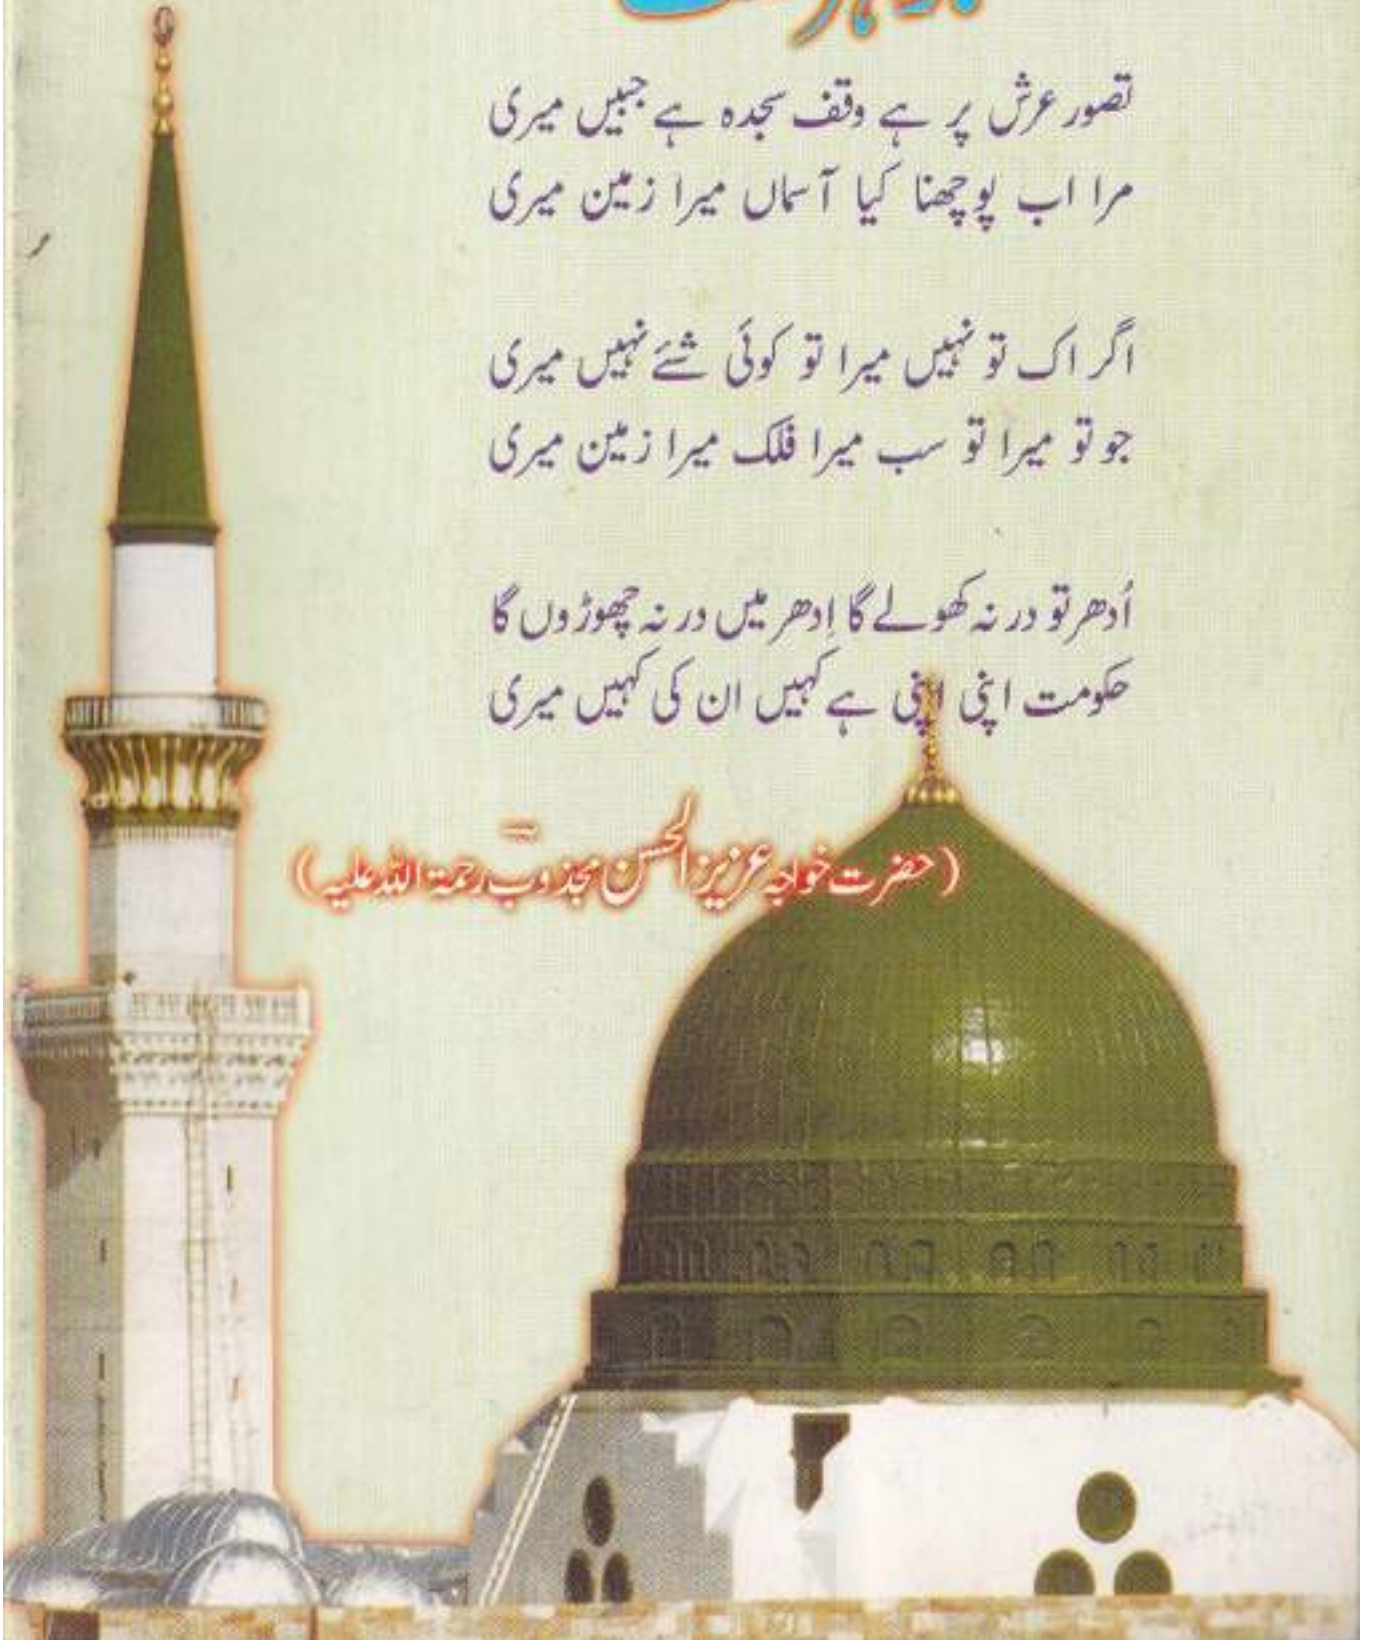 تصور عرش پر ہے وقف سجدہ ہے جبیں میری
مرا اب پوچھنا کیا آسماں میرا زمین میری
اگر اک تو نہیں میرا تو کوئی شئے نہیں میری
جو تو میرا تو سب میرا فلک میرا زمین میری
اُدھر تو در نہ کھولے گا اِدھر میں در نہ چھوڑوں گا
حکومت اپنی اپنی ہے کہیں ان کی کہیں میری
(حضرت خواجہ عزیز الحسن مجذوبؔ رحمۃ اللہ علیہ)